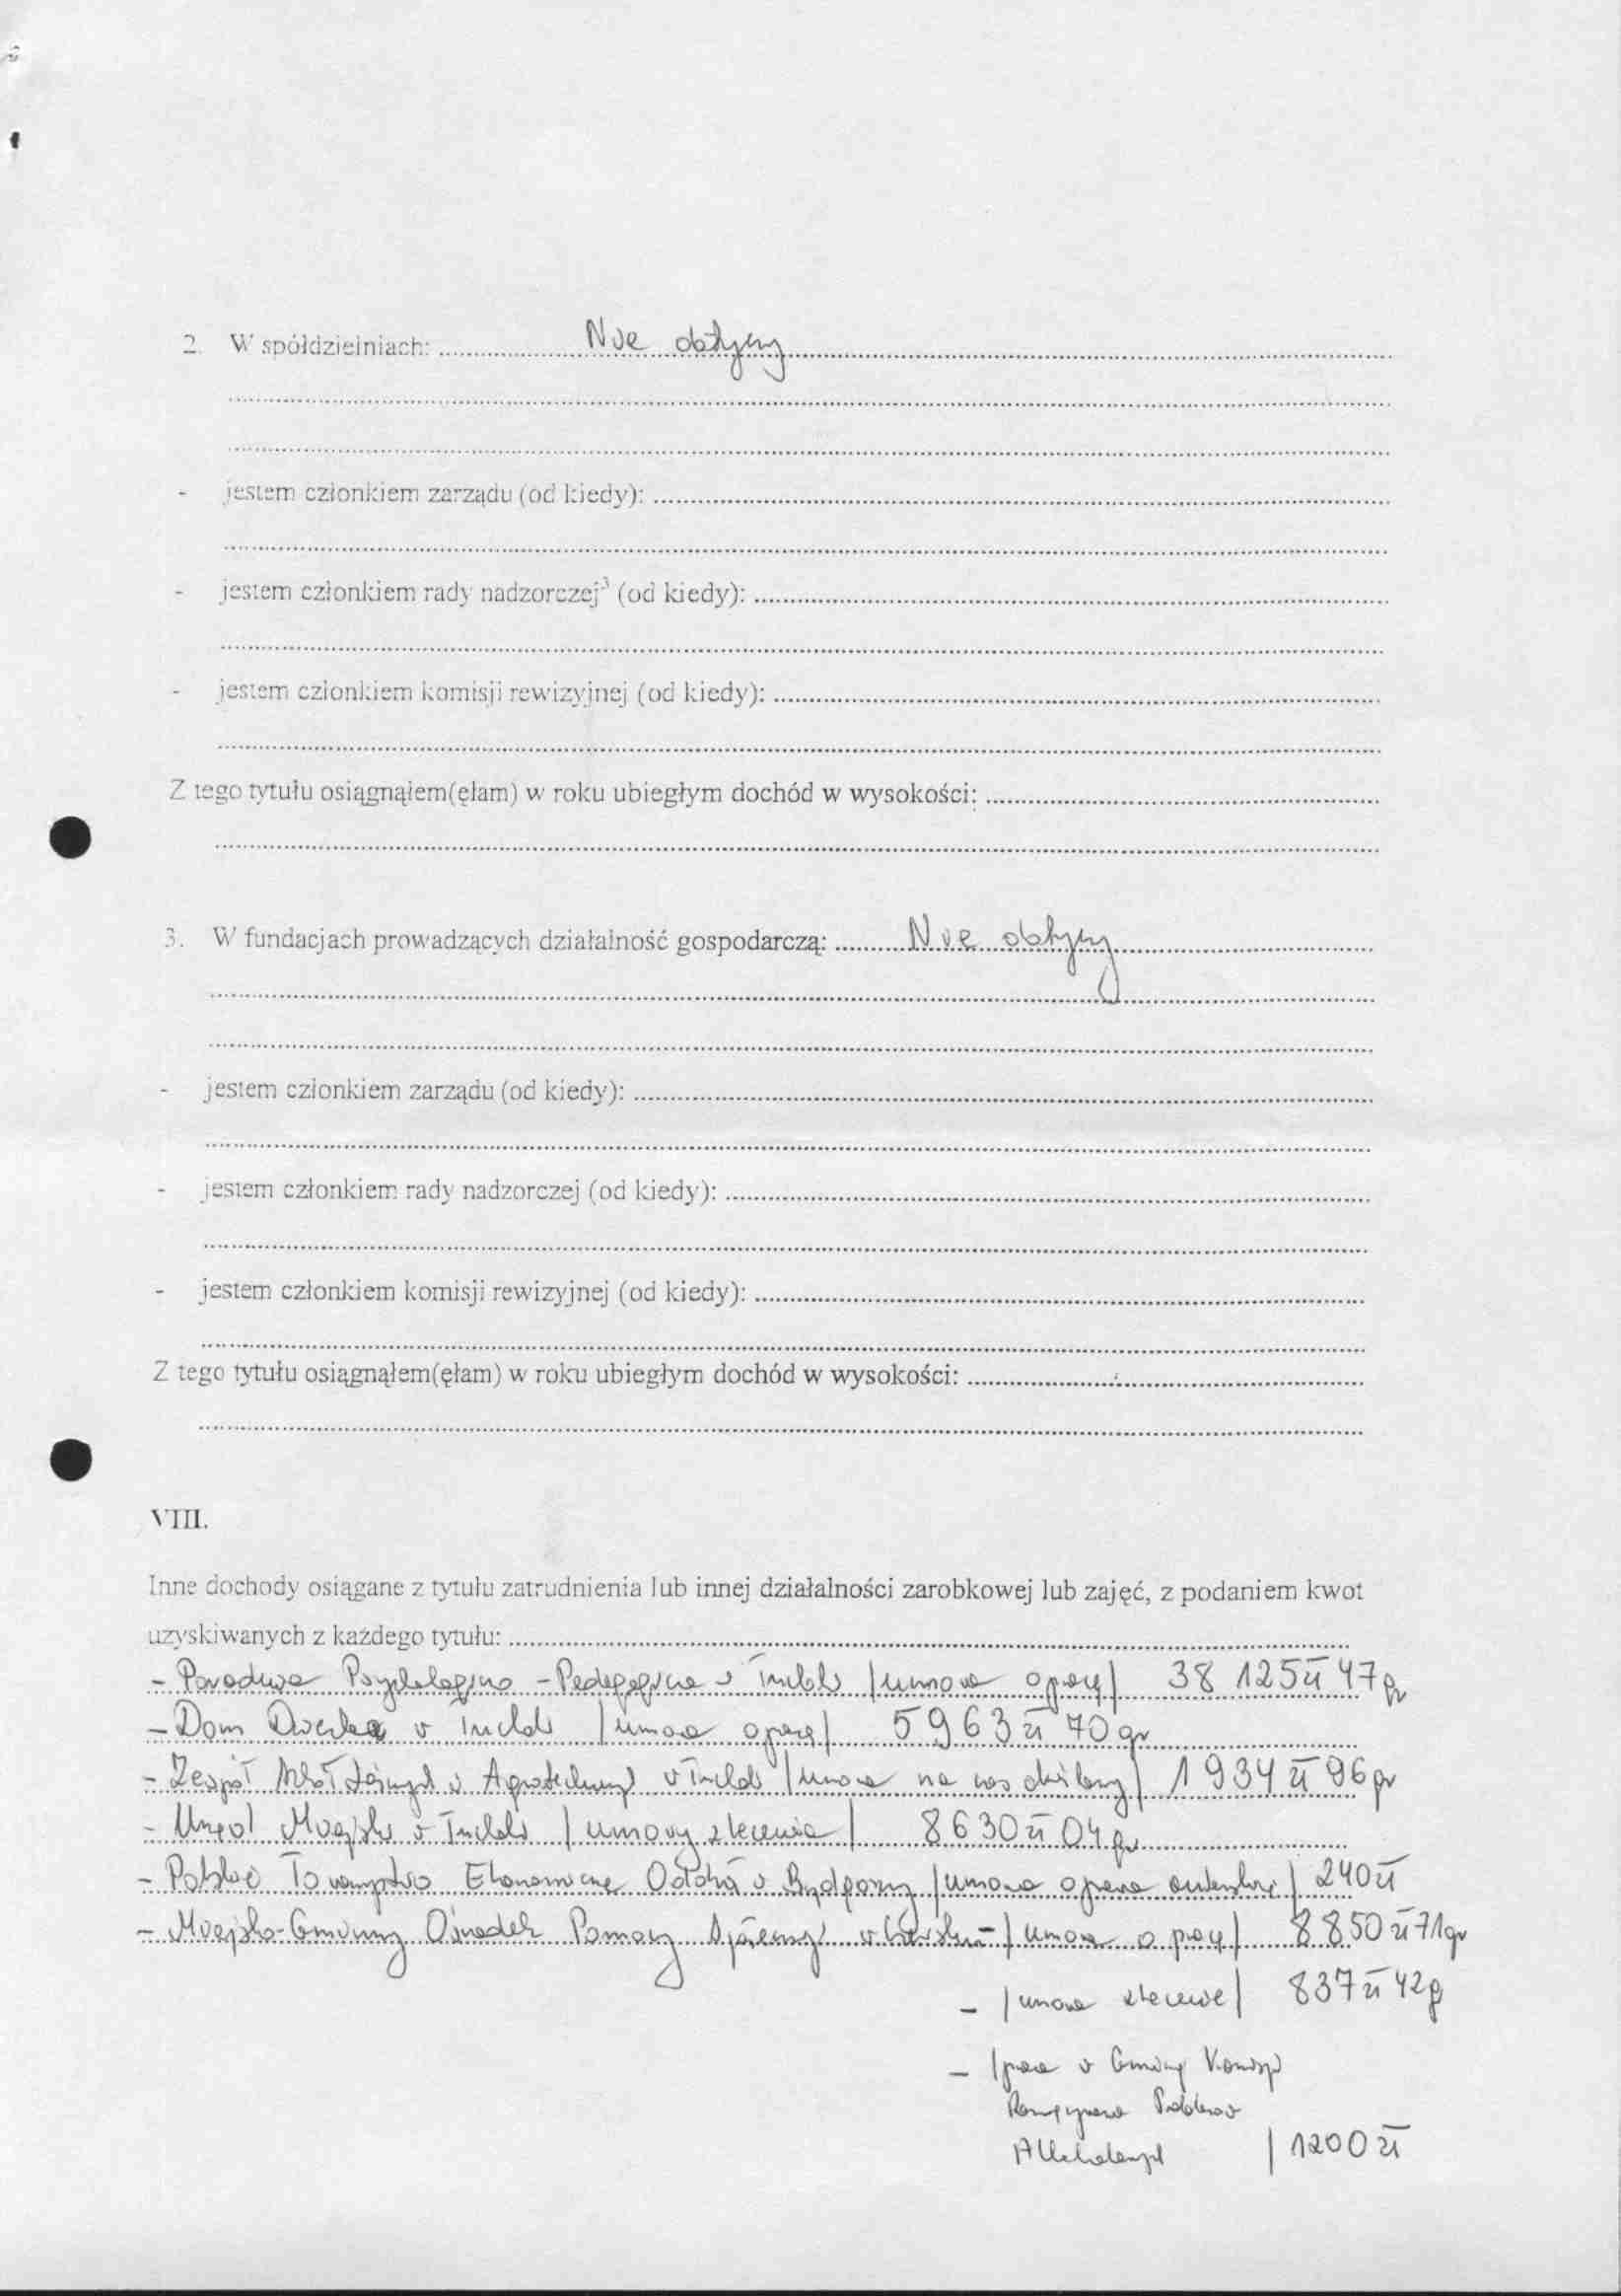 2. W spółdzielniach: Nie dotyczy
- jestem członkiem zarządu (od kiedy):
- jestem członkiem rady nadzorczej³ (od kiedy):
- jestem członkiem komisji rewizyjnej (od kiedy):
Z tego tytułu osiągnąłem(ęłam) w roku ubiegłym dochód w wysokości:
3. W fundacjach prowadzących działalność gospodarczą: Nie dotyczy
- jestem członkiem zarządu (od kiedy):
- jestem członkiem rady nadzorczej (od kiedy):
- jestem członkiem komisji rewizyjnej (od kiedy):
Z tego tytułu osiągnąłem(ęłam) w roku ubiegłym dochód w wysokości:
VIII.
Inne dochody osiągane z tytułu zatrudnienia lub innej działalności zarobkowej lub zajęć, z podaniem kwot
uzyskiwanych z każdego tytułu:
- Poradnia Psychologiczno - Pedagogiczna w Tucholi /umowa o pracę/ 38 125 zł 47 gr
- Dom Dziecka w Tucholi /umowa o pracę/ 5963 zł 70 gr
- Zespół Szkół Leśnych i Agrotechnicznych w Tucholi /umowa na czas określony/ 1934 zł 96 gr
- Urząd Miejski w Tucholi /umowy zlecenia/ 8630 zł 04 gr
- Polskie Towarzystwo Ekonomiczne Oddział w Bydgoszczy /umowa o prawa autorskie/ 240 zł
- Miejsko-Gminny Ośrodek Pomocy Społecznej w Czersku - /umowa o pracę/ 8850 zł 71 gr
- /umowa zlecenie/ 837 zł 42 gr
- /praca w Gminnej Komisji
Rozwiązywania Problemów
Alkoholowych / 1200 zł